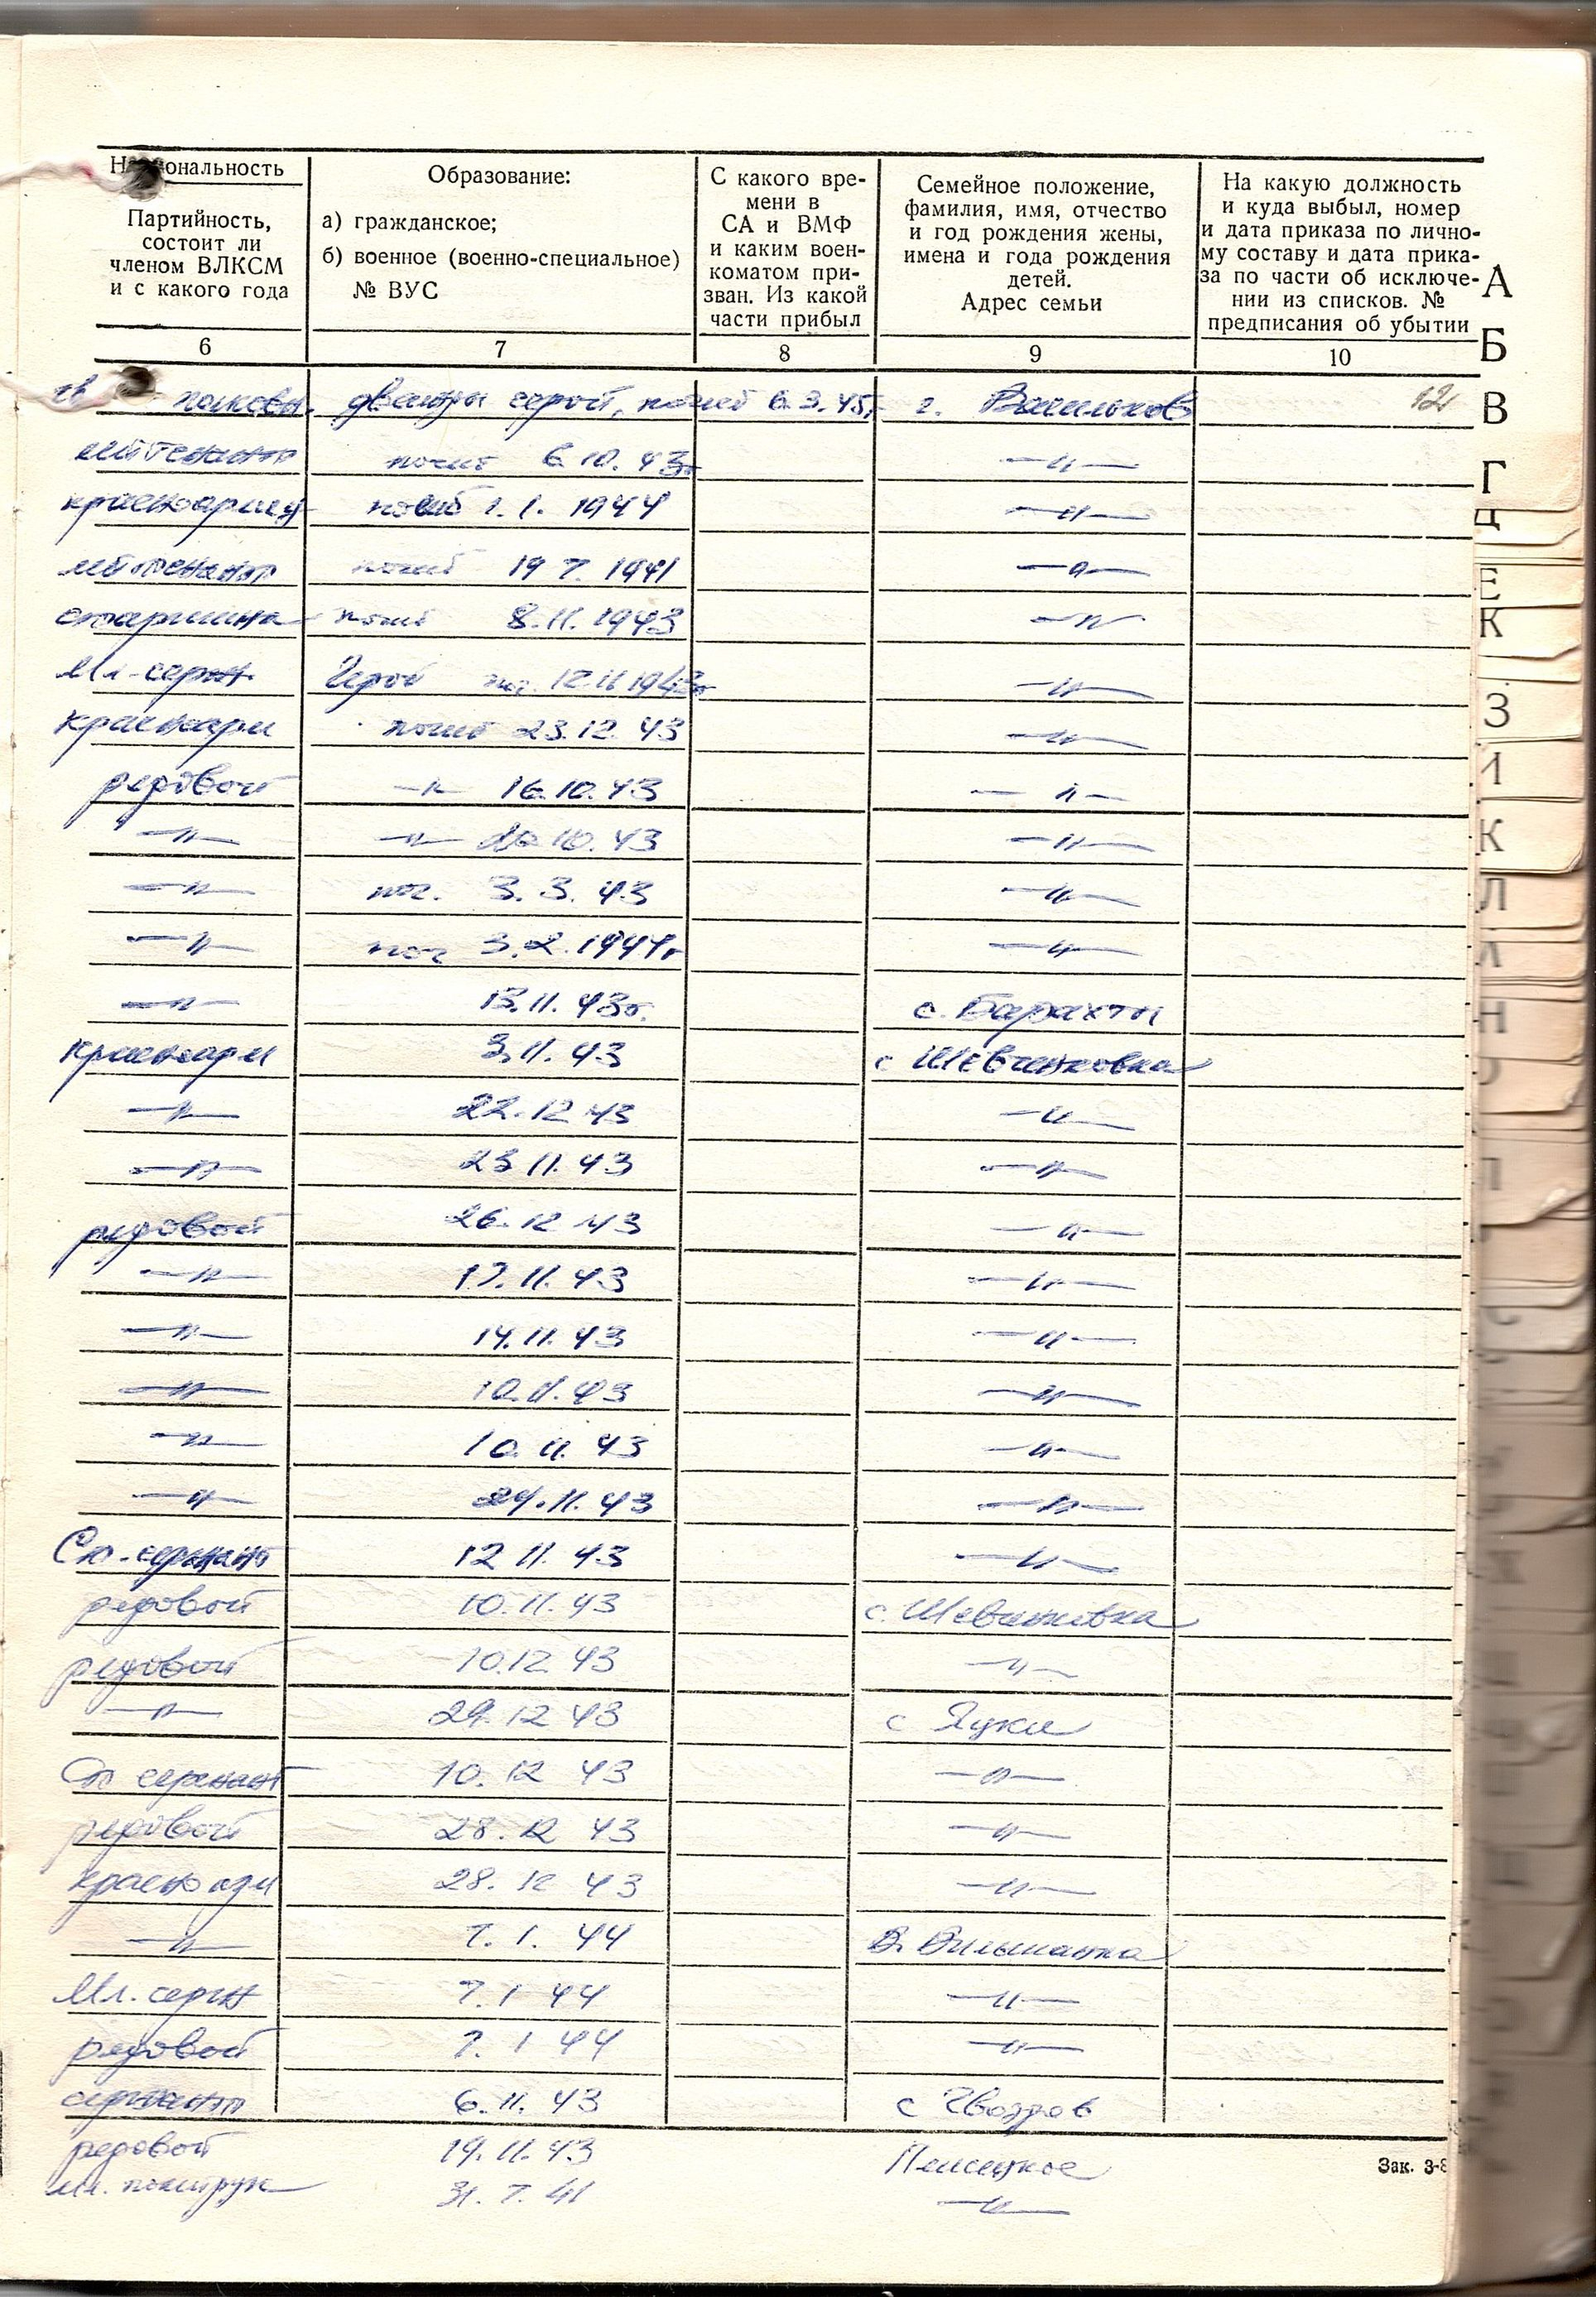 Национальность
Партийность,
состоит ли
членом ВЛКСМ
и с какого года
Образование:
а) гражданское;
б) военное (военно-специальное)
№ ВУС
С какого вре-
мени в
СА и ВМФ
и каким воен-
коматом при-
зван. Из какой
части прибыл
Семейное положение,
фамилия, имя, отчество
и год рождения жены,
имена и года рождения
детей.
Адрес семьи
На какую должность
и куда выбыл, номер
и дата приказа по лично-
му составу и дата прика-
за по части об исключе-
нии из списков. №
предписания об убытии
6 7 8 9 10
полковн. дважды герой, погиб 6.3.45г. г. Васильков 12
лейтенант погиб 6.10.43г —"—
красноармец погиб 1.1.1944 —"—
лейтенант погиб 19 7. 1941 —"—
старшина погиб 8.11.1943 —"—
Мл-серж. Герой пог. 12.11 1943г —"—
Красноарм погиб 23.12.43 —"—
рядовой —"— 16.10.43 —"—
—"— —"— 10.43 —"—
—"— пог. 3.3.43 —"—
—"— пог 3.2.1944г —"—
—"— 13.11.43г. с. Барахты
красноарм 3.11.43 с Шевченковка
—"— 22.12 43 —"—
—"— 23 11.43 —"—
рядовой 26.12 43 —"—
—"— 17.11.43 —"—
—"— 14.11.43 —"—
—"— 10.11.43 —"—
—"— 10.11.43 —"—
—"— 24.11.43 —"—
Ст-сержант 12 11.43 —"—
рядовой 10.11.43 с. Шевченковка
рядовой 10.12 43 —"—
—"— 29.12 43 с Яцки
Ст сержант 10.12 43 —"—
рядовой 28.12 43 —"—
красноарм 28.12 43 —"—
—"— 7.1.44 В. Вильшанка
Мл. серж 7.1 44 —"—
рядовой 7.1 44 —"—
сержант 6.11.43 с Гвоздов
рядовой 19.11.43 Плисецкое
Мл. политрук 31.7.41 —"—
Зак. 3-8
А
Б
В
Г
Д
Е
К
З
К
Л
Н
П